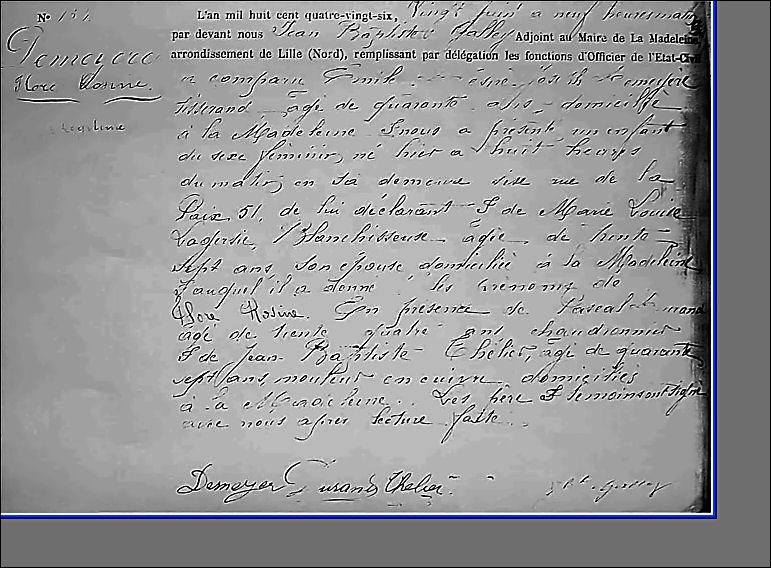 No 151
Demeyere
Flore Rosine.
L'an mil huit cent quatre-vingt-six, vingt juin à neuf heures matin
par devant nous Jean Baptiste Adjoint au Maire de La Madeleine
arrondissement de Lille (Nord), remplissant par délégation les fonctions d'Officier de l'Etat-Civil
a comparu Emile Demeyere
tisserand âgé de quarante ans domicilié
à la Madeleine & nous a présenté un enfant
du sexe féminin, né hier à huit heures
du matin, en sa demeure sise rue de la
Paix 51, de lui déclarant & de Marie Louise
Blanchisseuse âgée de trente
sept ans, son épouse domiciliée à la Madeleine
& auquel il a donné les prénoms de
Flore Rosine. En présence de Pascal Durand
âgé de trente quatre ans, chaudronnier
& de Jean Baptiste Thélier, âgé de quarante
sept ans, mouleur en cuivre domiciliés
à la Madeleine. Les père & témoins ont signé
avec nous après lecture faite.
Demeyer Durand Thelier